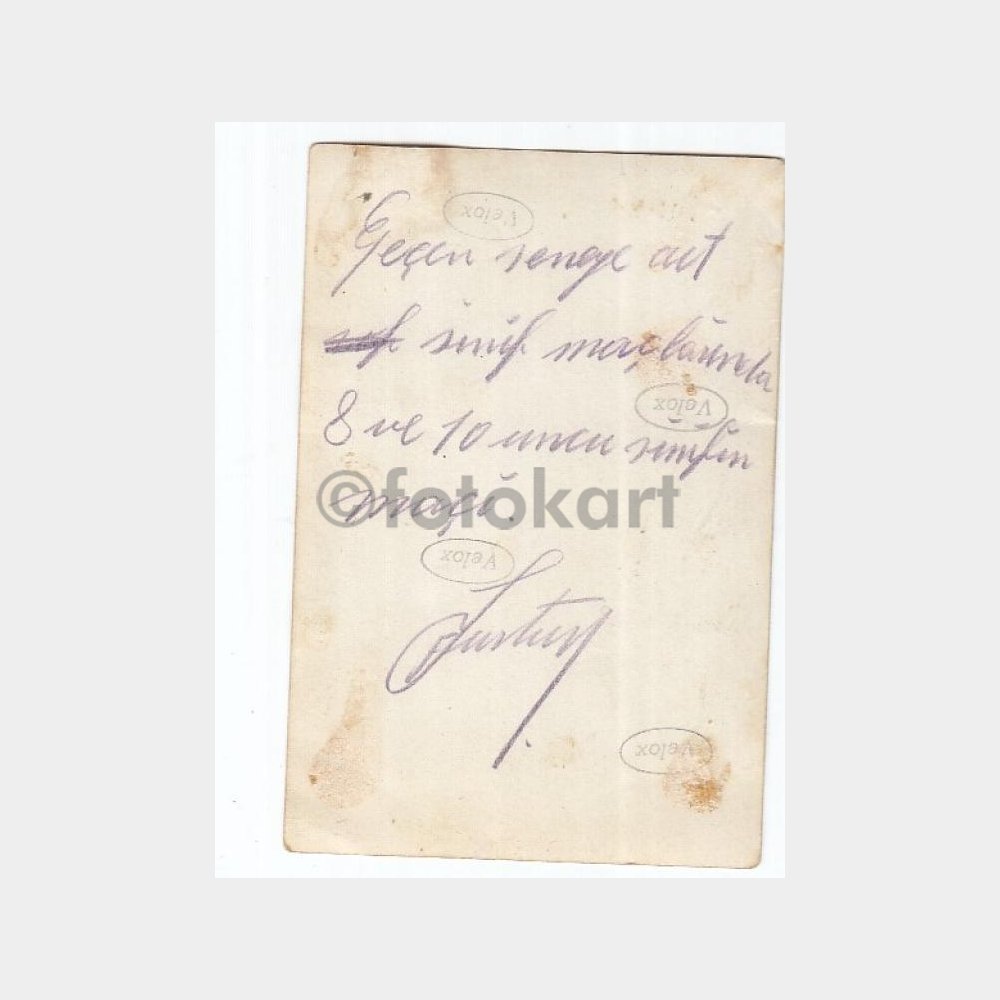 Velox
Geçen seneye ait
sınıf maçlarında
Velox
8 ve 10 uncu sınıfın
maçı.
©fotokart
Velox
Velox